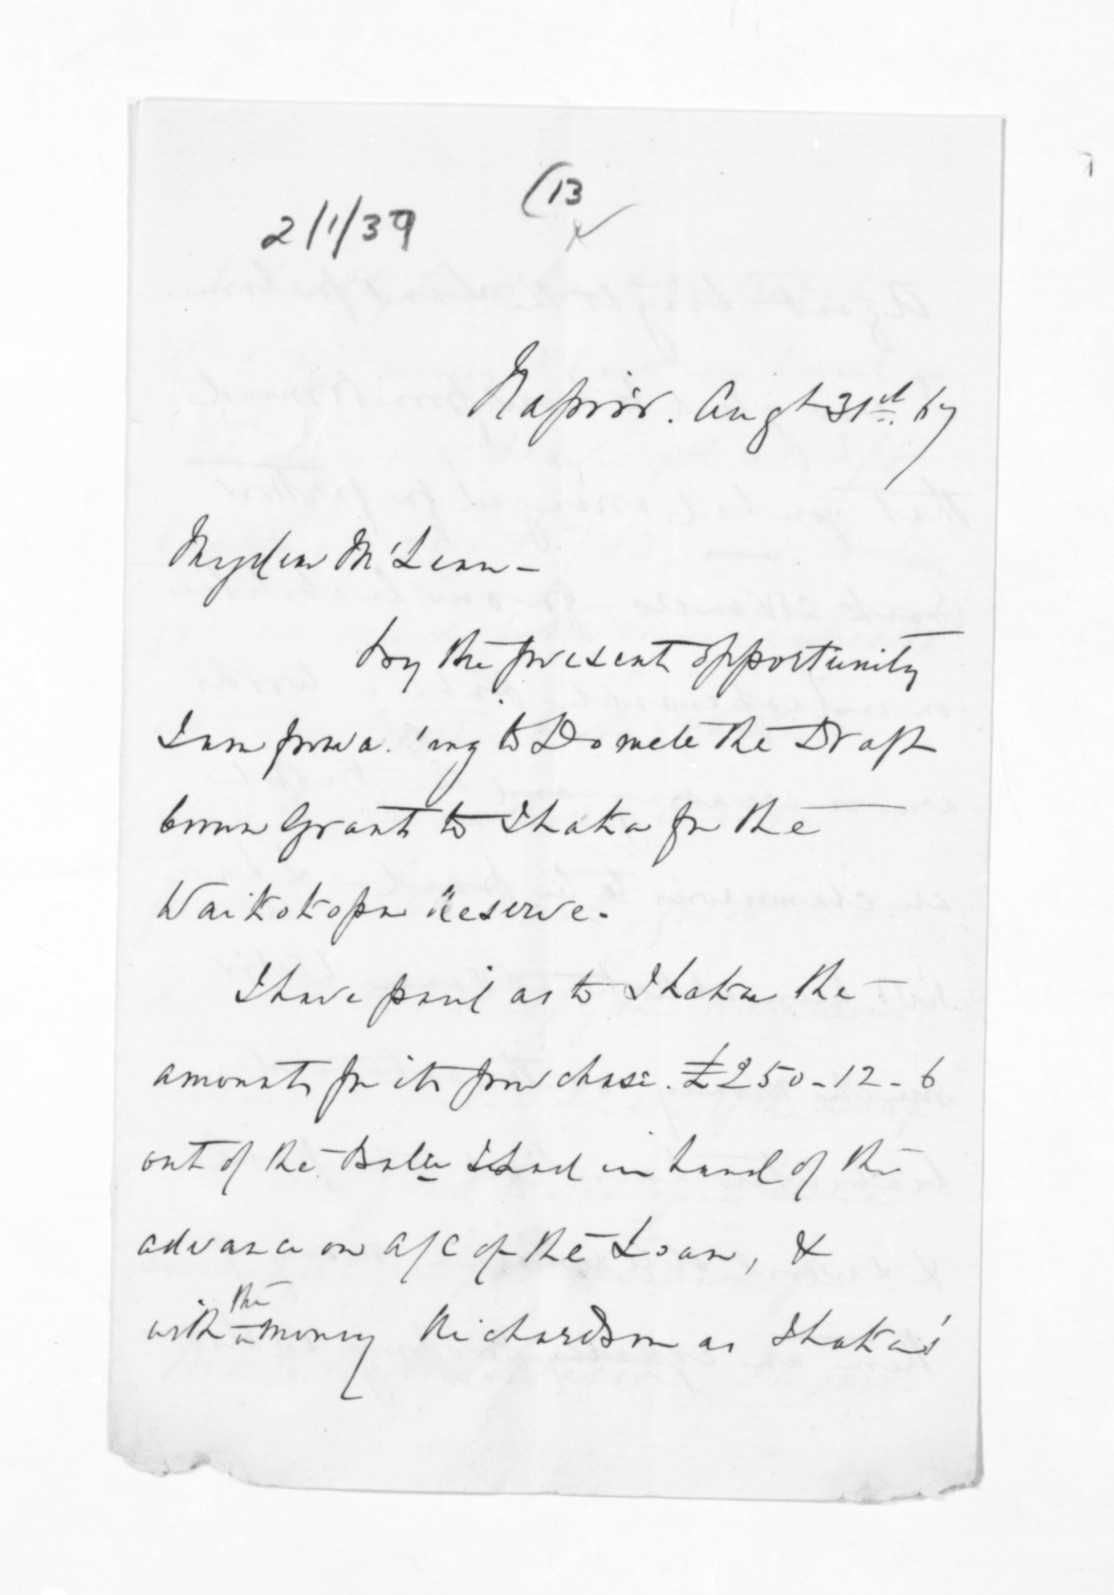 (13
2/1/39
Napier. Augt 31st. 67
My dear McLean -
by the present opportunity
I am forwa.'ing to Domett the Draft
Crown Grant to Ihaka for the
Waikokopu Reserve.
I have paid as to Ihaka the
amount for its purchase. £250-12-6
out of the Balce I had in hand of the
advance on a/c of the Loan, &
with the money Richardson as Ihaka's